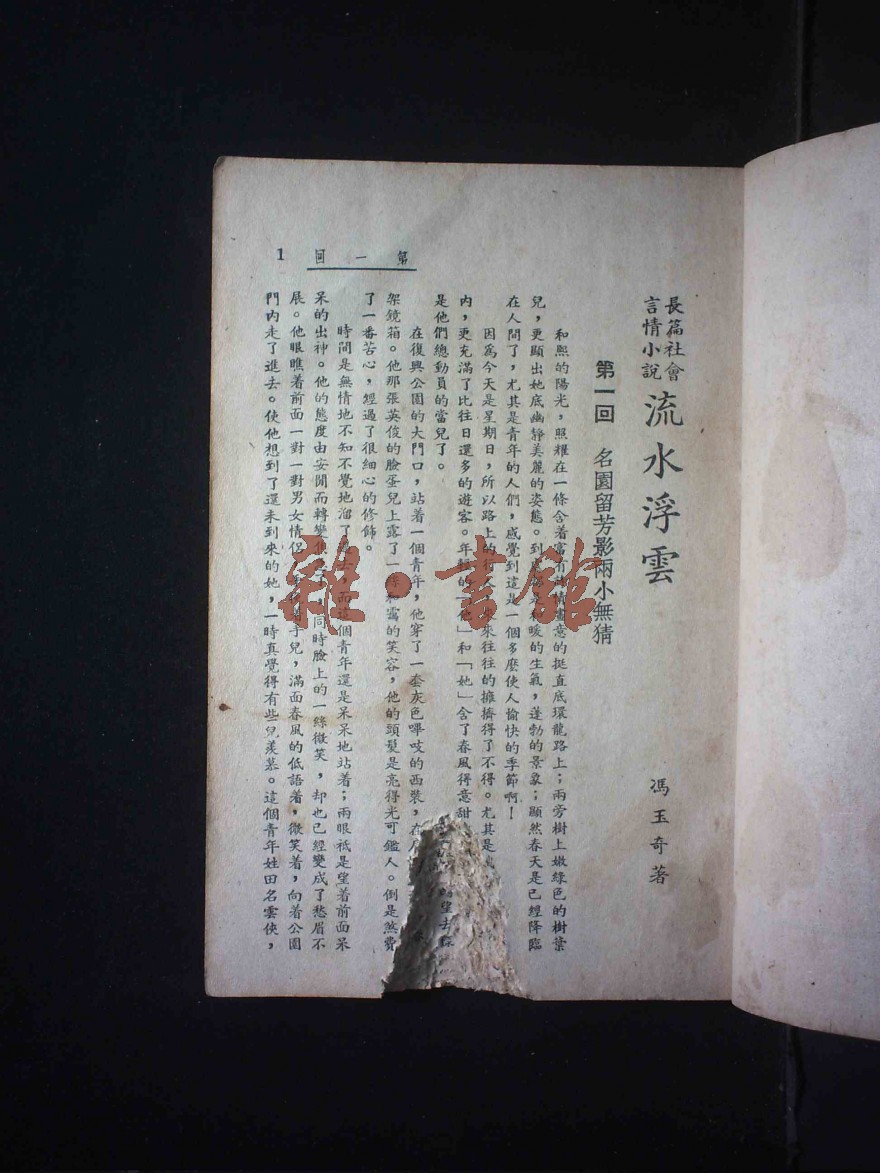 第一回
1
長篇社會
言情小說
流水浮雲
馮玉奇著
第一回 名園留芳影兩小無猜
和熙的陽光,照耀在一條含着富有詩情畫意的挺直底環龍路上;兩旁樹上嫩綠色的樹葉
兒,更顯出她底幽靜美麗的姿態。到處都是和暖的生氣,蓬勃的景象;顯然春天是已經降臨
在人間了,尤其是青年的人們,感覺到這是一個多麼使人愉快的季節啊!
因為今天是星期日,所以路上的行人來來往往的擁擠得了不得。尤其是
內,更充滿了比往日還多的遊客。年輕的「他」和「她」含了春風得意甜
是他們總動員的當兒了。
在復興公園的大門口,站着一個青年,他穿了一套灰色嗶吱的西裝,在
架鏡箱。他那張英俊的臉蛋兒上露了一絲和靄的笑容,他的頭髮是亮得光可鑑人。倒是煞費
了一番苦心,經過了很細心的修飾。
時間是無情地不知不覺地溜了過去,而這個青年還是呆呆地站着;兩眼祇是望着前面呆
呆的出神。他的態度由安閒而轉變,同時臉上的一絲微笑,却也已經變成了愁眉不
展。他眼瞧着前面一對一對男女情侶,手挽着手兒,滿面春風的低語着,微笑着,向着公園
門內走了進去。使他想到了還未到來的她,一時真覺得有些兒羨慕。這個青年姓田名雲俠,
雜·書館